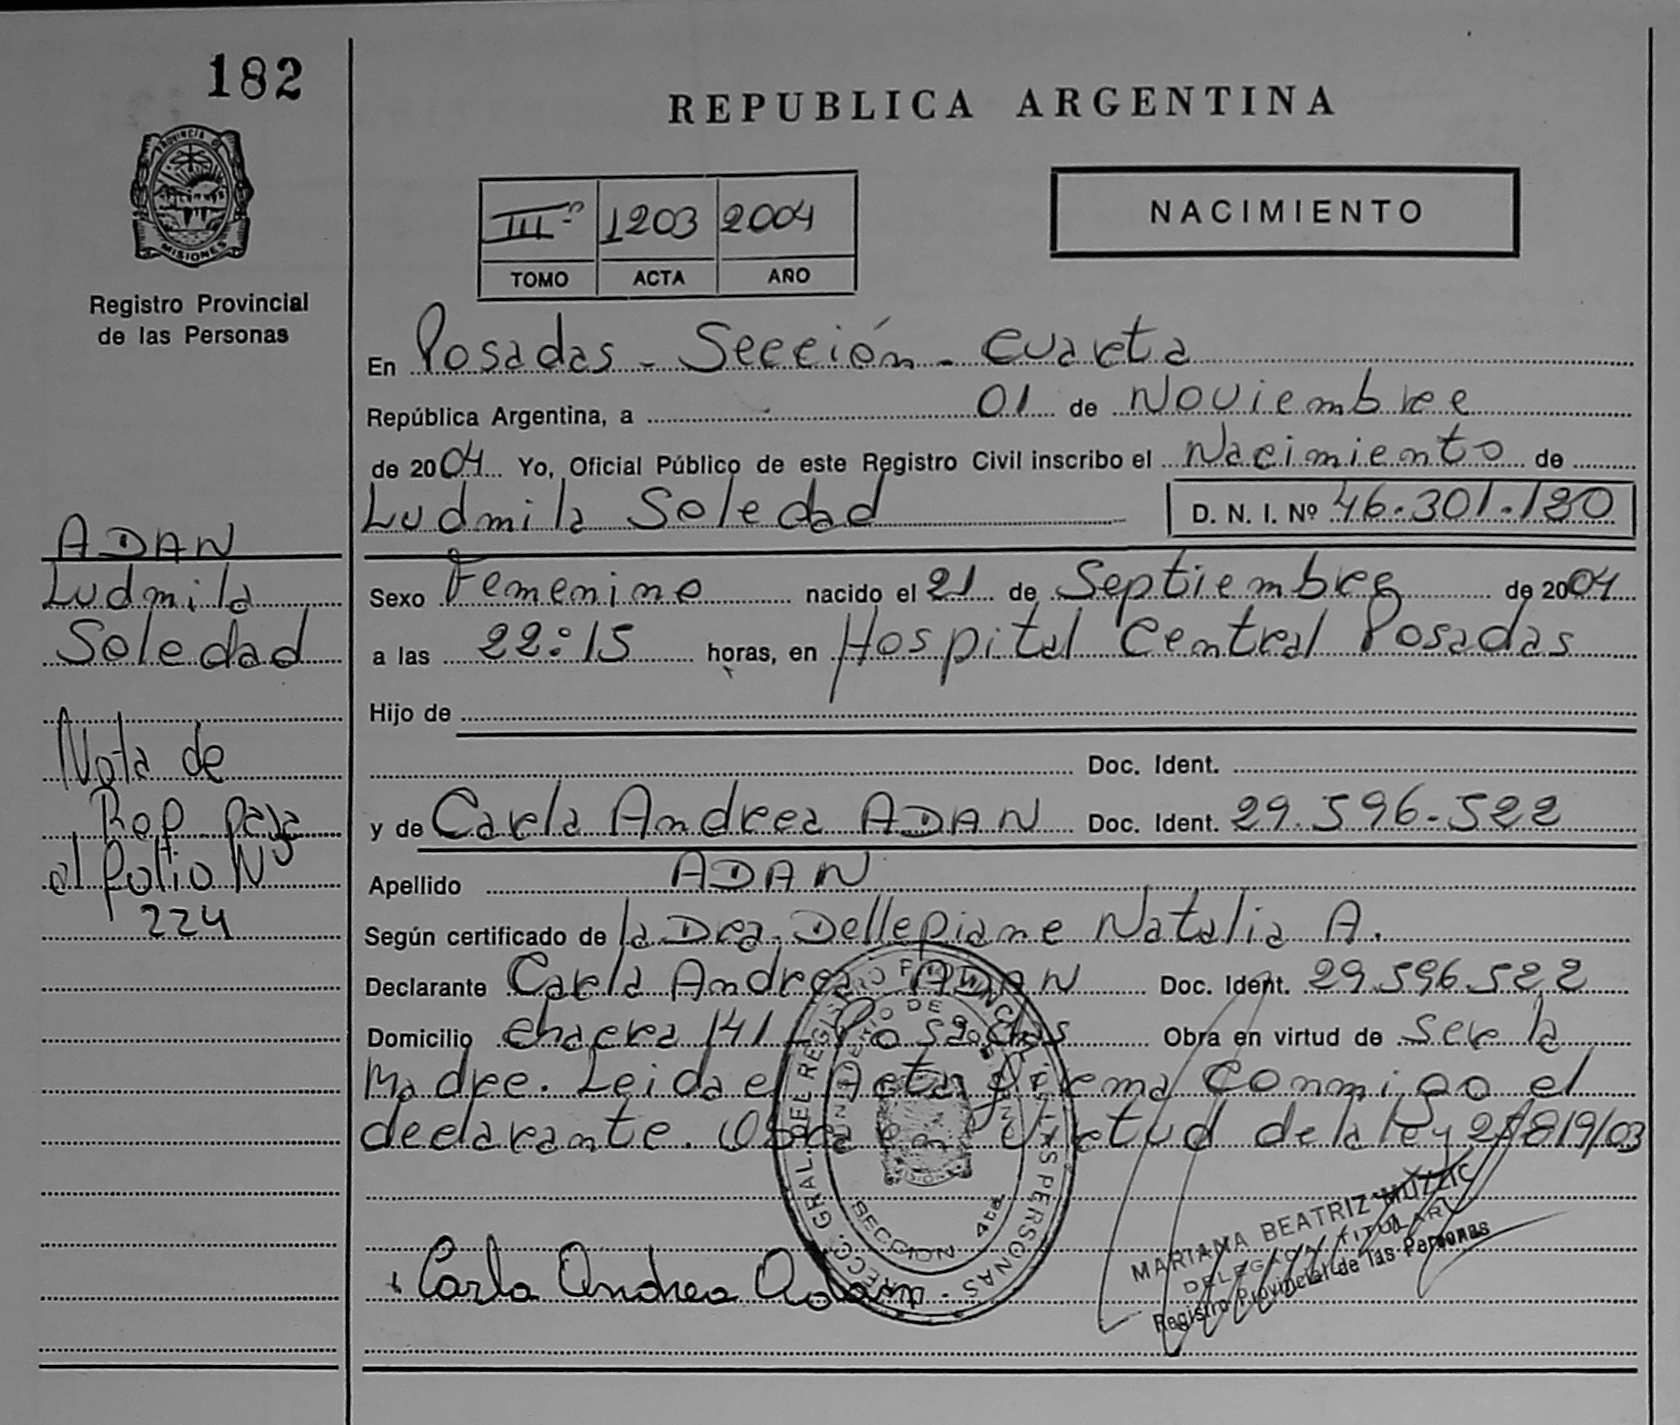 182
PROVINCIA DE
MISIONES
Registro Provincial
de las Personas
REPUBLICA ARGENTINA
III º 1203 2004
TOMO ACTA AÑO
NACIMIENTO
En Posadas - Sección - Cuarta
República Argentina, a 01 de Noviembre
de 2004 Yo, Oficial Público de este Registro Civil inscribo el Nacimiento de
Ludmila Soledad D. N. I. Nº 46.301.180
Sexo Femenino nacido el 21 de Septiembre de 2004
a las 22:15 horas, en Hospital Central Posadas
Hijo de
Doc. Ident.
y de Carla Andrea ADAN Doc. Ident. 29.596.522
Apellido ADAN
Según certificado de la Dra. Dellepiane Natalia A.
Declarante Carla Andrea ADAN Doc. Ident. 29.596.522
Domicilio chacra 141 - Posadas Obra en virtud de ser la
Madre. Leida el Acta firma conmigo el
declarante. Obra en virtud de la ley 25819/03
Carla Andrea Adan.
MARIANA BEATRIZ MUZZIC
DELEGADA TITULAR
Registro Provincial de las Personas
SECCION 4ta
ADAN
Ludmila
Soledad
Nota de
Rep. pasa
al folio Nº
224